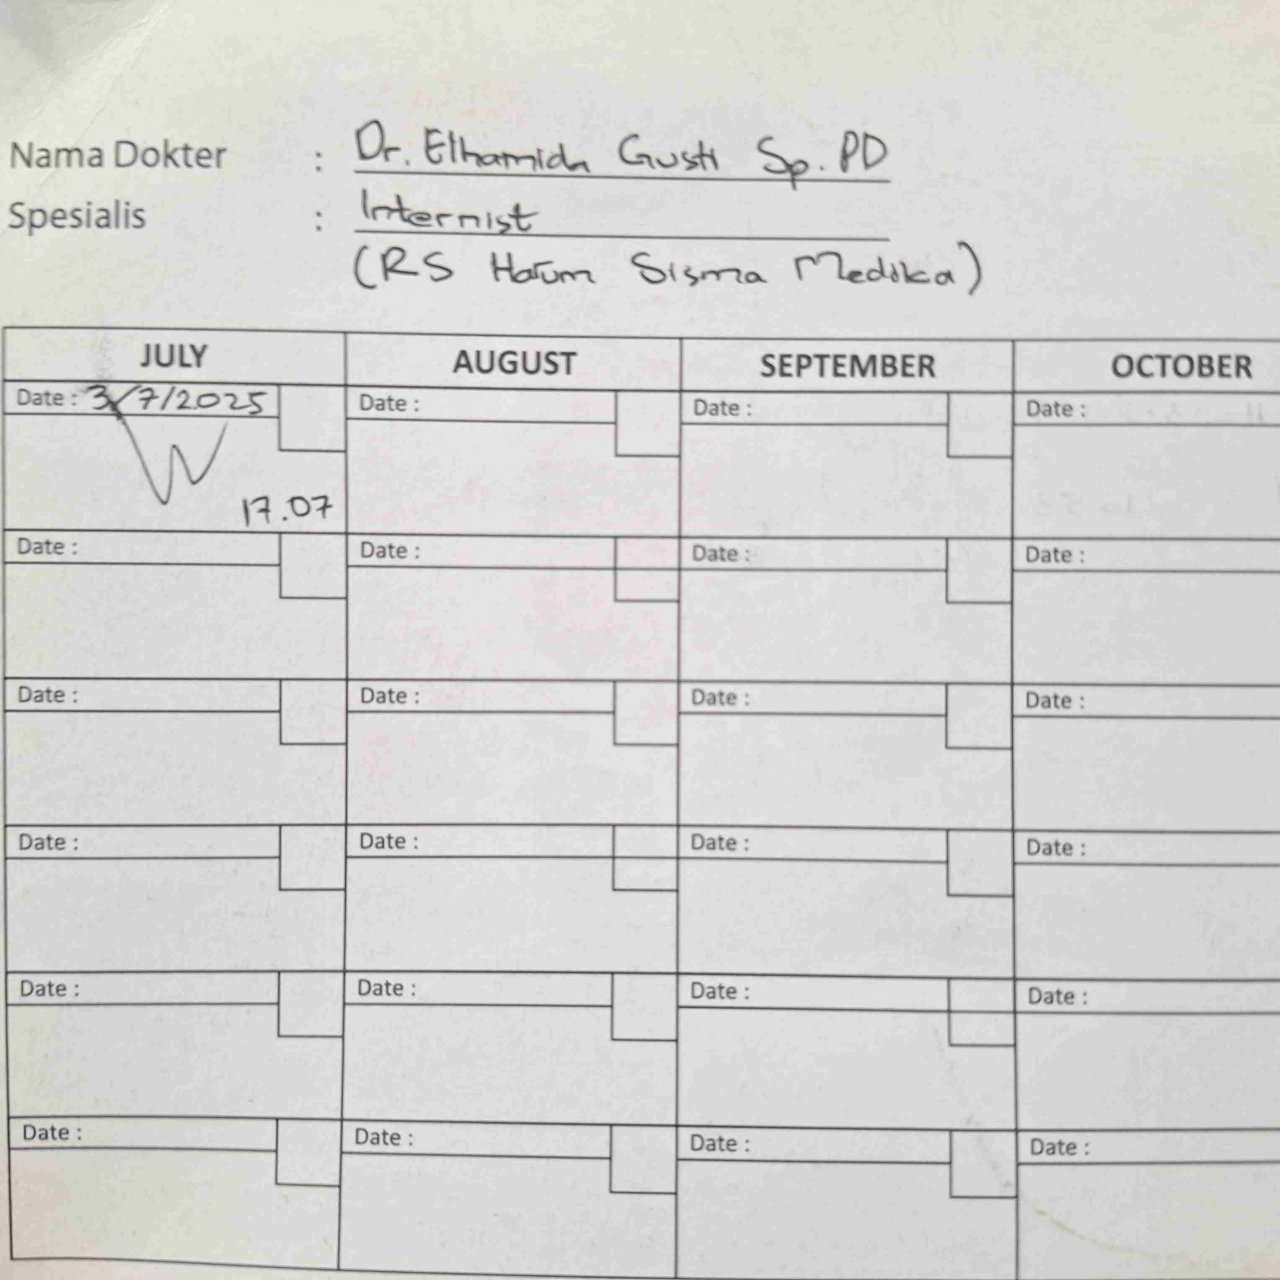 Nama Dokter : Dr. Elhamida Gusti Sp.PD
Spesialis : Internist
(RS Harum Sisma Medika)
JULY AUGUST SEPTEMBER OCTOBER
Date : 3/7/2025 Date : Date : Date :
17.07
Date : Date : Date : Date :
Date : Date : Date : Date :
Date : Date : Date : Date :
Date : Date : Date : Date :
Date : Date : Date : Date :